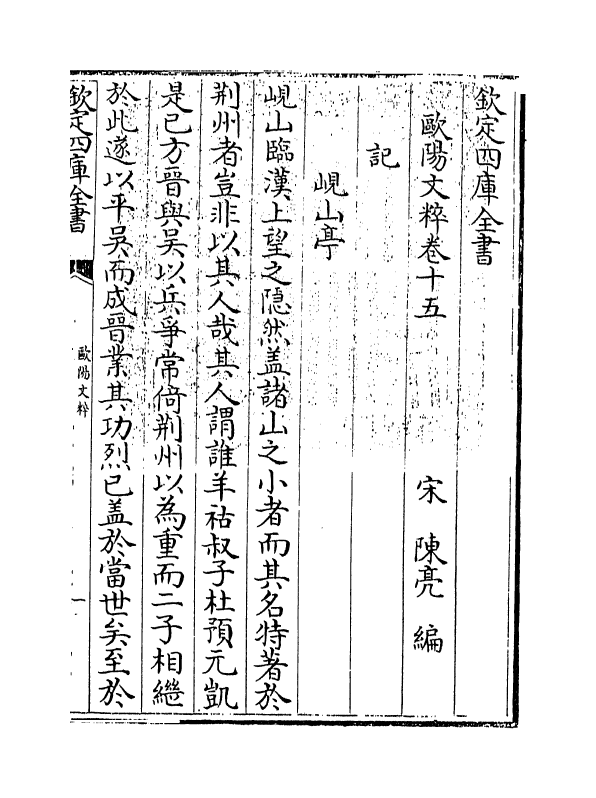 欽定四庫全書
歐陽文粹卷十五
宋 陳亮 編
記
峴山亭
峴山臨漢上望之隠然盖諸山之小者而其名特著於
荆州者豈非以其人哉其人謂誰羊祜叔子杜預元凱
是已方晉與吳以兵爭常倚荆州以為重而二子相繼
於此遂以平吳而成晉業其功烈已盖於當世矣至於
欽定四庫全書
歐陽文粹
一